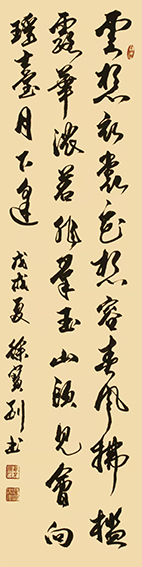 雲想衣裳花想容春風拂檻
露華濃若非羣玉山頭見會向
瑤臺月下逢
戊戌夏徐寶書